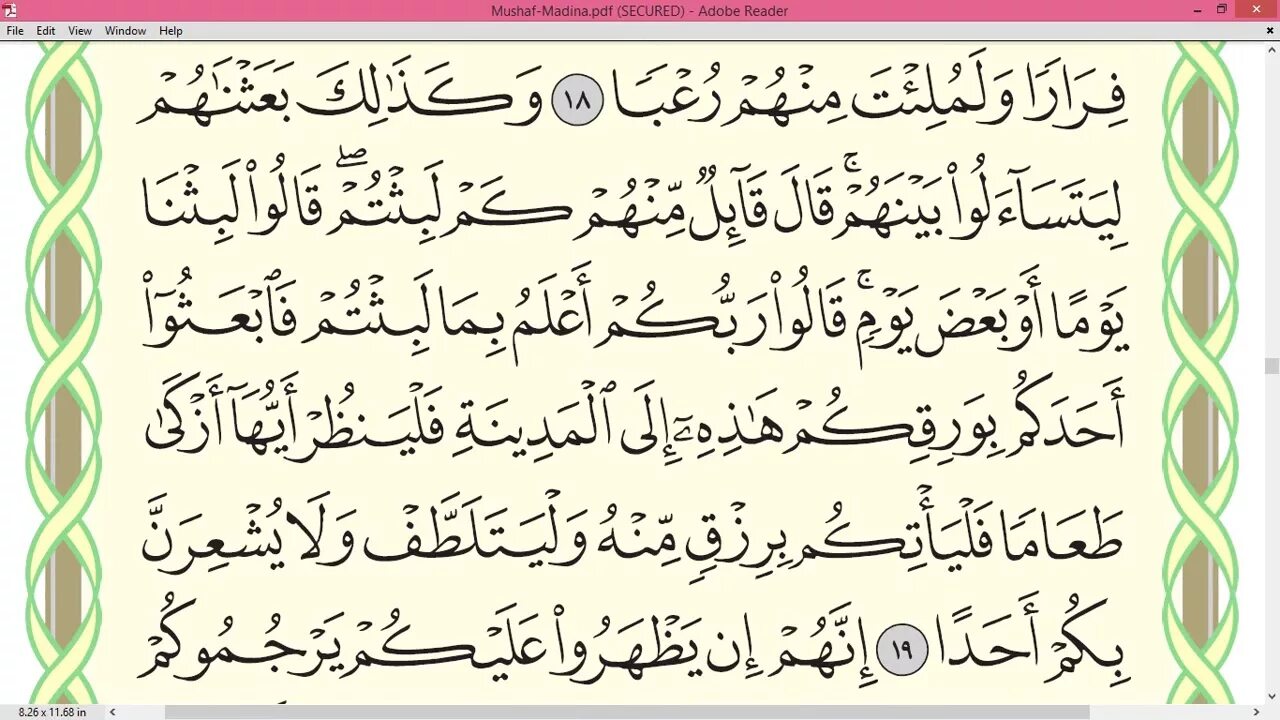 Mushaf-Madina.pdf (SECURED) - Adobe Reader
File Edit View Window Help
فِرَارًا وَلَمُلِئْتَ مِنْهُمْ رُعْبًا ١٨ وَكَذَٰلِكَ بَعَثْنَٰهُمْ
لِيَتَسَآءَلُوا۟ بَيْنَهُمْ ۚ قَالَ قَآئِلٌ مِّنْهُمْ كَمْ لَبِثْتُمْ ۖ قَالُوا۟ لَبِثْنَا
يَوْمًا أَوْ بَعْضَ يَوْمٍ ۚ قَالُوا۟ رَبُّكُمْ أَعْلَمُ بِمَا لَبِثْتُمْ فَٱبْعَثُوٓا۟
أَحَدَكُم بِوَرِقِكُمْ هَٰذِهِۦٓ إِلَى ٱلْمَدِينَةِ فَلْيَنظُرْ أَيُّهَآ أَزْكَىٰ
طَعَامًا فَلْيَأْتِكُم بِرِزْقٍ مِّنْهُ وَلْيَتَلَطَّفْ وَلَا يُشْعِرَنَّ
بِكُمْ أَحَدًا ١٩ إِنَّهُمْ إِن يَظْهَرُوا۟ عَلَيْكُمْ يَرْجُمُوكُمْ
8.26 x 11.68 in